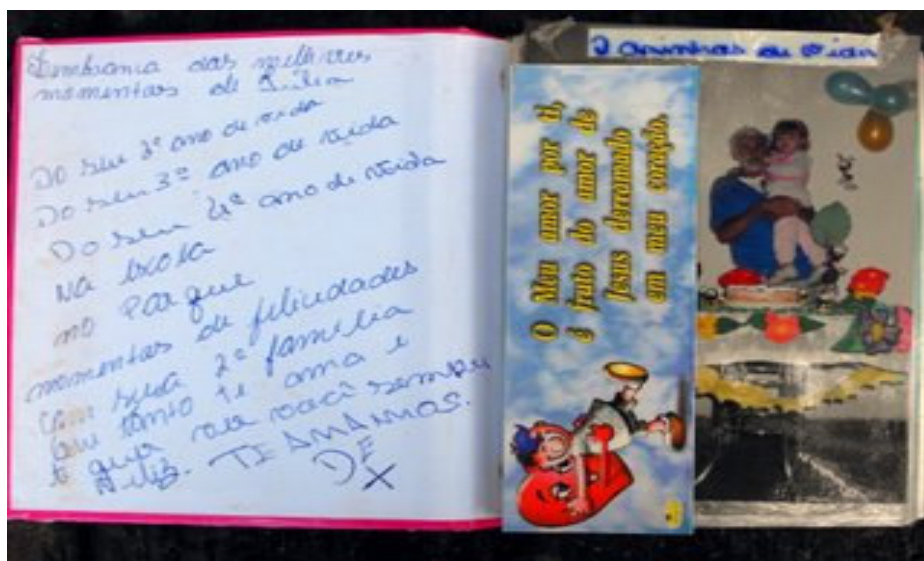 Lembrança das melhores
momentos de
Do seu 3º ano de vida
Do seu 3º ano de vida
Do seu 4º ano de vida
Na Escola
no Parque
momentos de felicidades
com sua 2ª família
que tanto te ama e
e quer ver você sempre
feliz. TE AMAMOS.
DE
X
O Meu amor por ti,
é fruto do amor de
Jesus derramado
em meu coração.
2 aninhos de vida